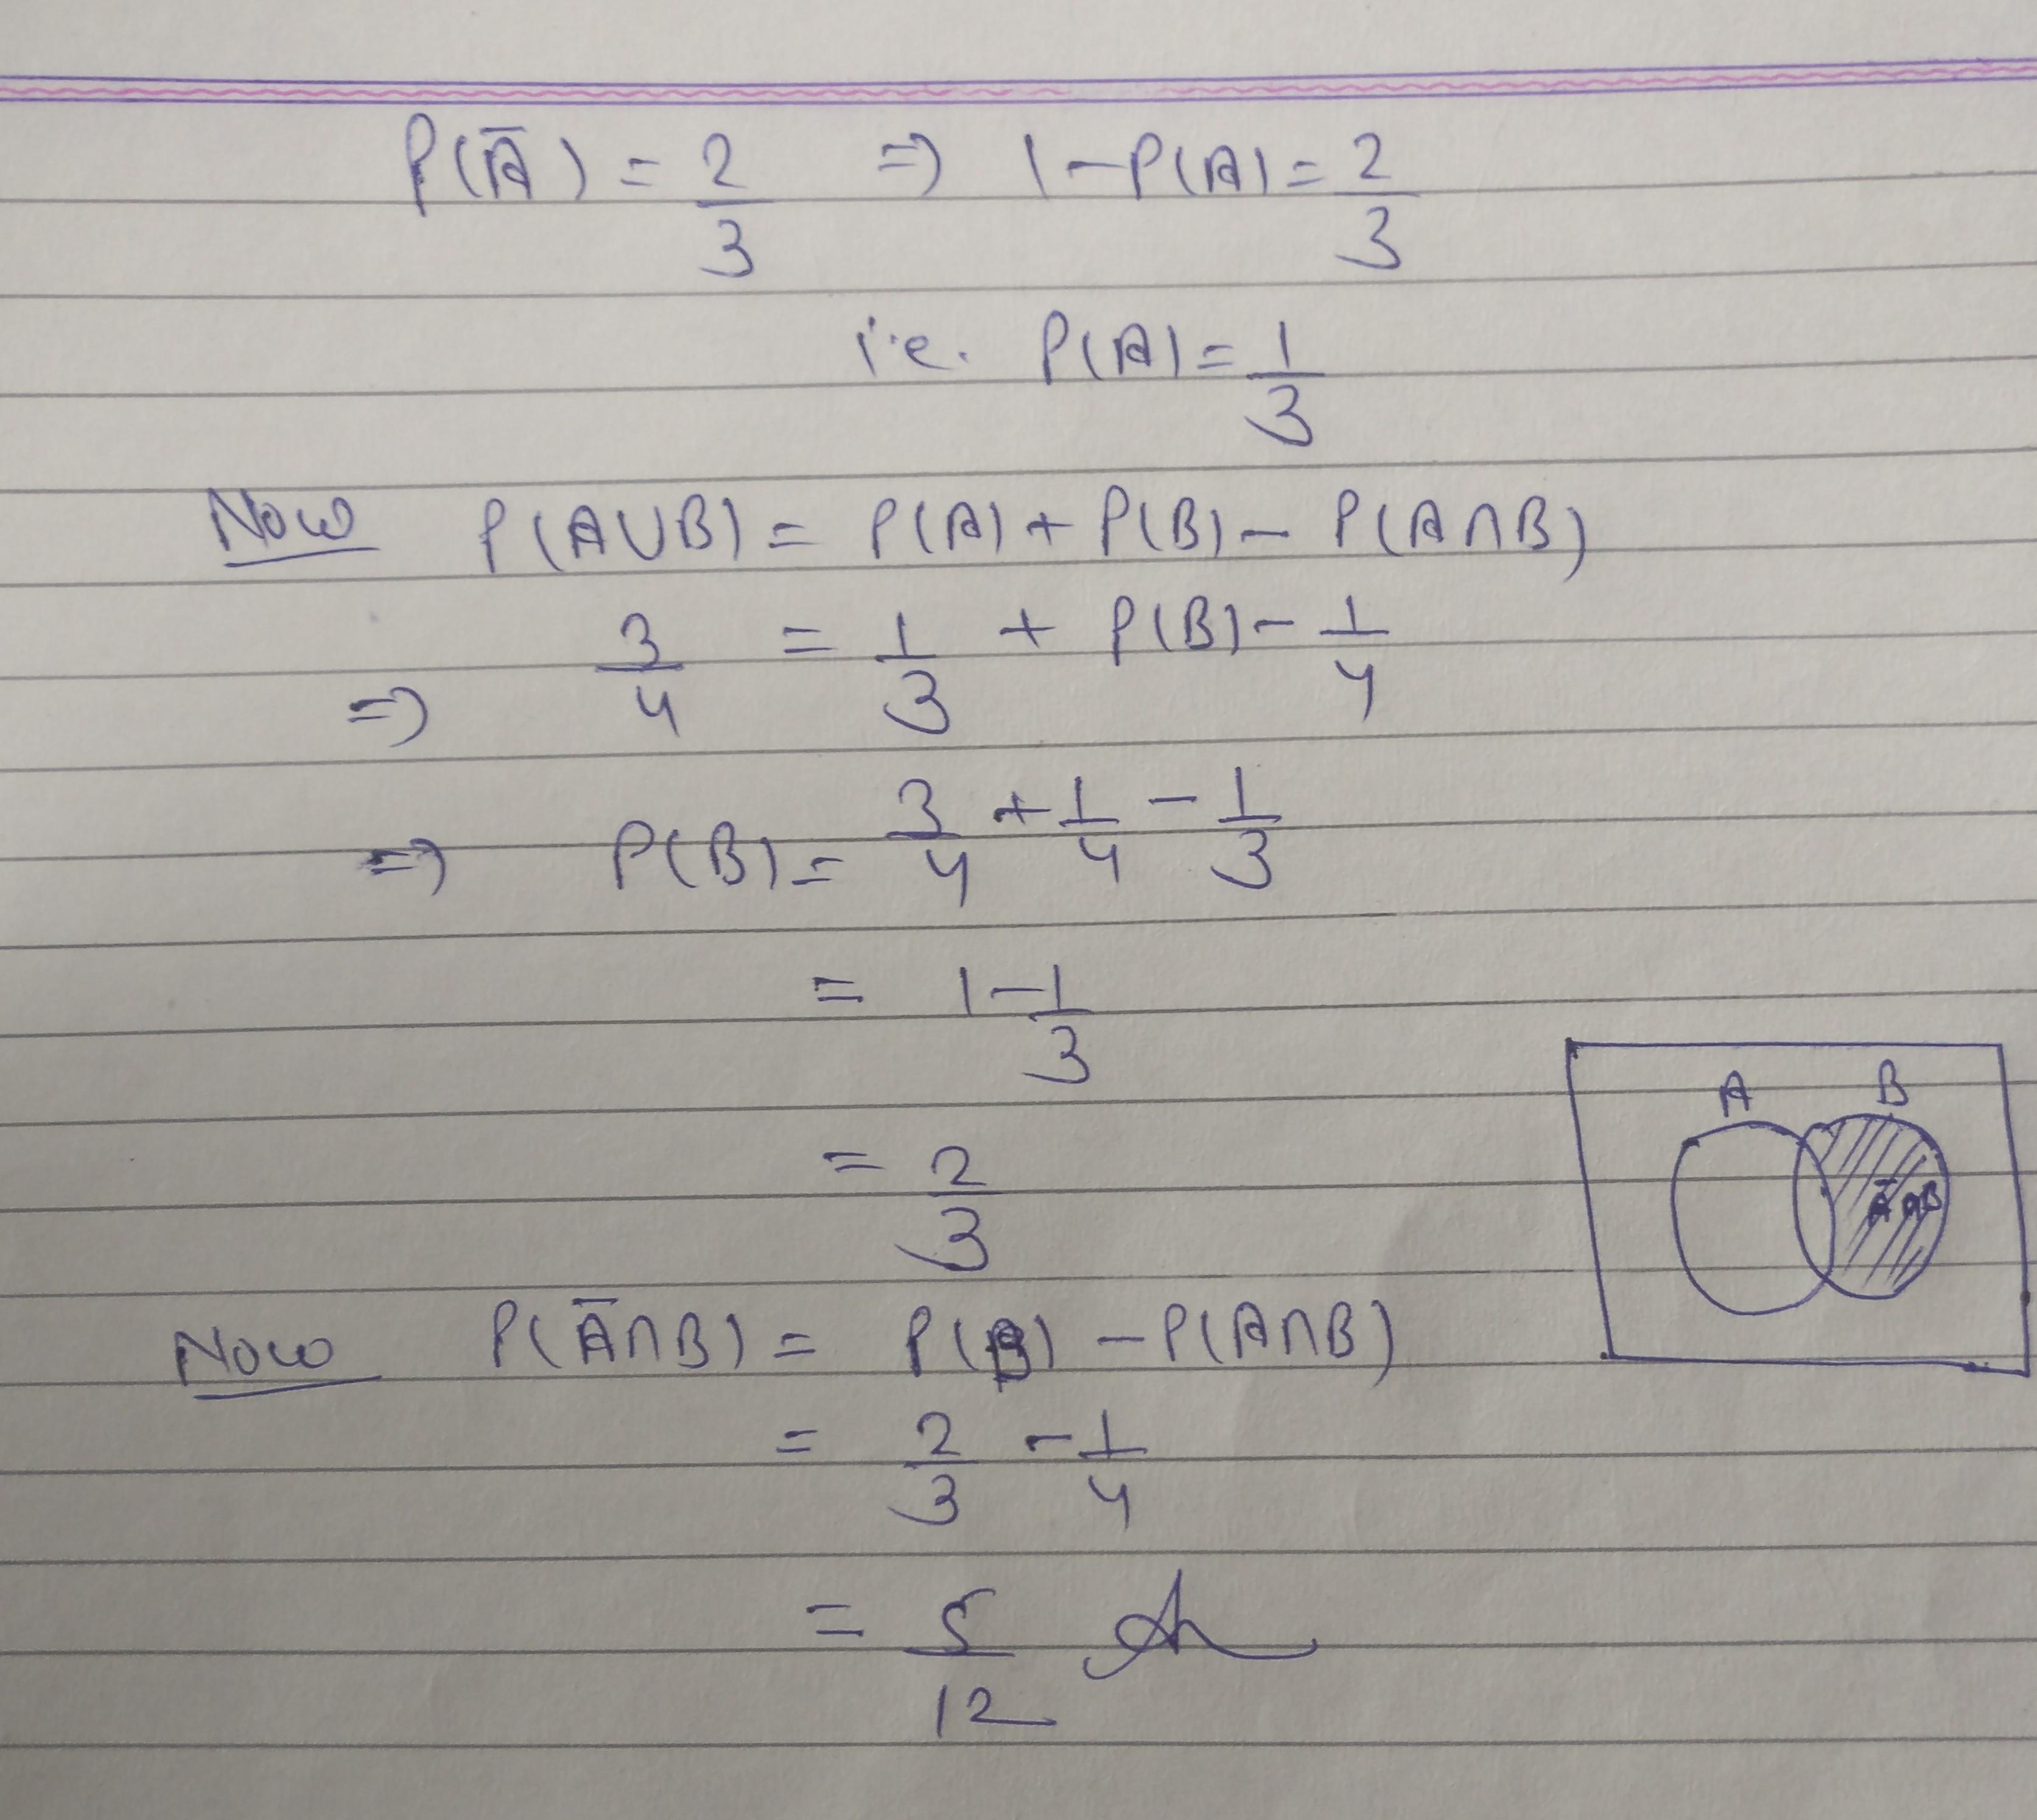 P(Ā) = 2/3 => 1-P(A) = 2/3
i.e. P(A) = 1/3
Now P(A∪B) = P(A) + P(B) - P(A∩B)
=> 3/4 = 1/3 + P(B) - 1/4
=> P(B) = 3/4 + 1/4 - 1/3
= 1 - 1/3
= 2/3
A B
Ā∩B
Now P(Ā∩B) = P(B) - P(A∩B)
= 2/3 - 1/4
= 5/12